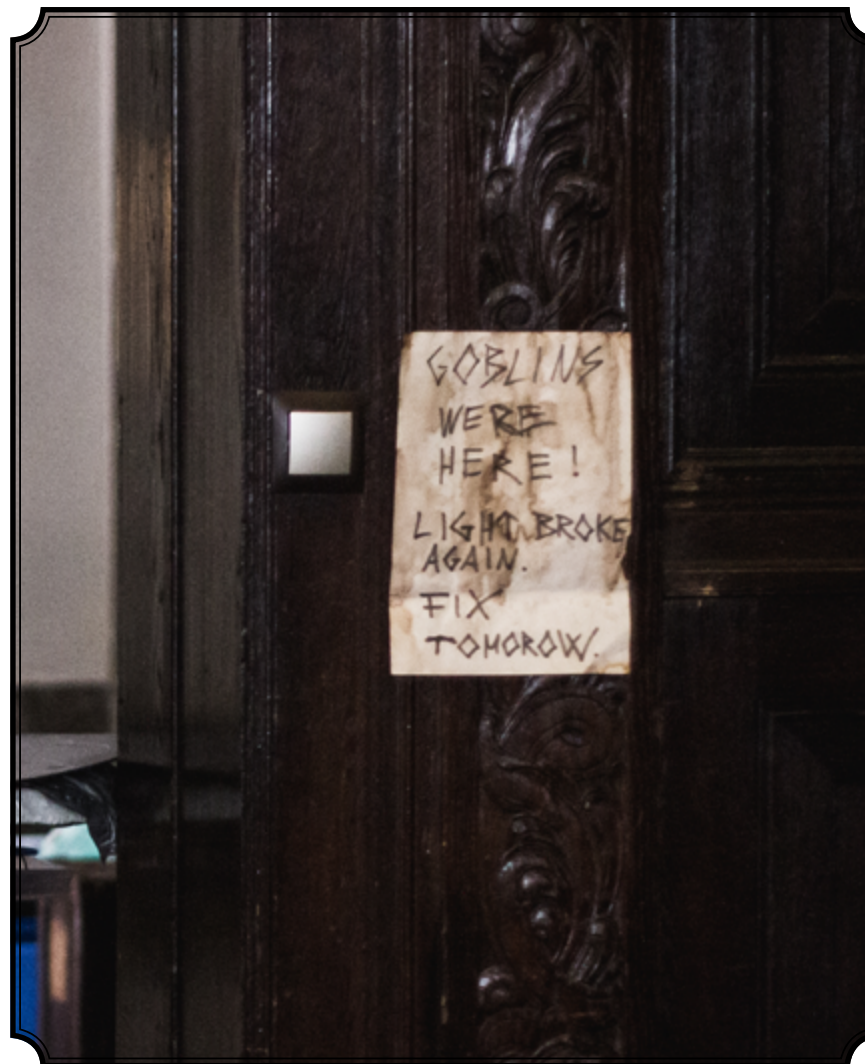 GOBLINS
WERE
HERE!
LIGHT BROKE
AGAIN.
FIX
TOMOROW.